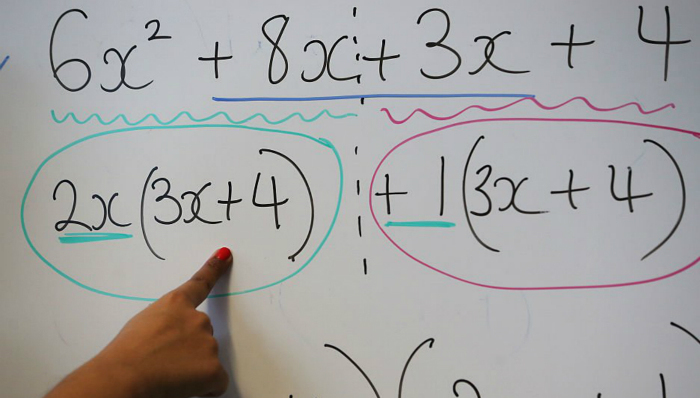 6x² + 8x + 3x + 4
2x(3x+4) + 1(3x + 4)